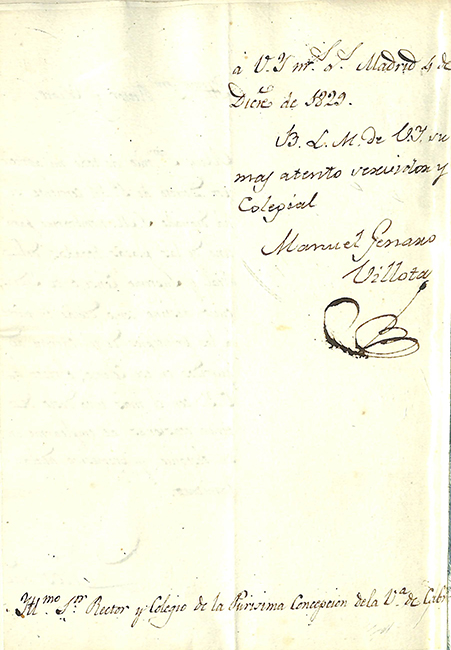 á V. Y. m.s a.s Madrid 4 de
Dic.e de 1829.
B. L. M. de V. Y. su
mas atento servidor y
Colegial
Manuel Genaro
Villota
Yll.mo S.or Rector y Colegio de la Purisima Concepcion de la V.a de Cabr